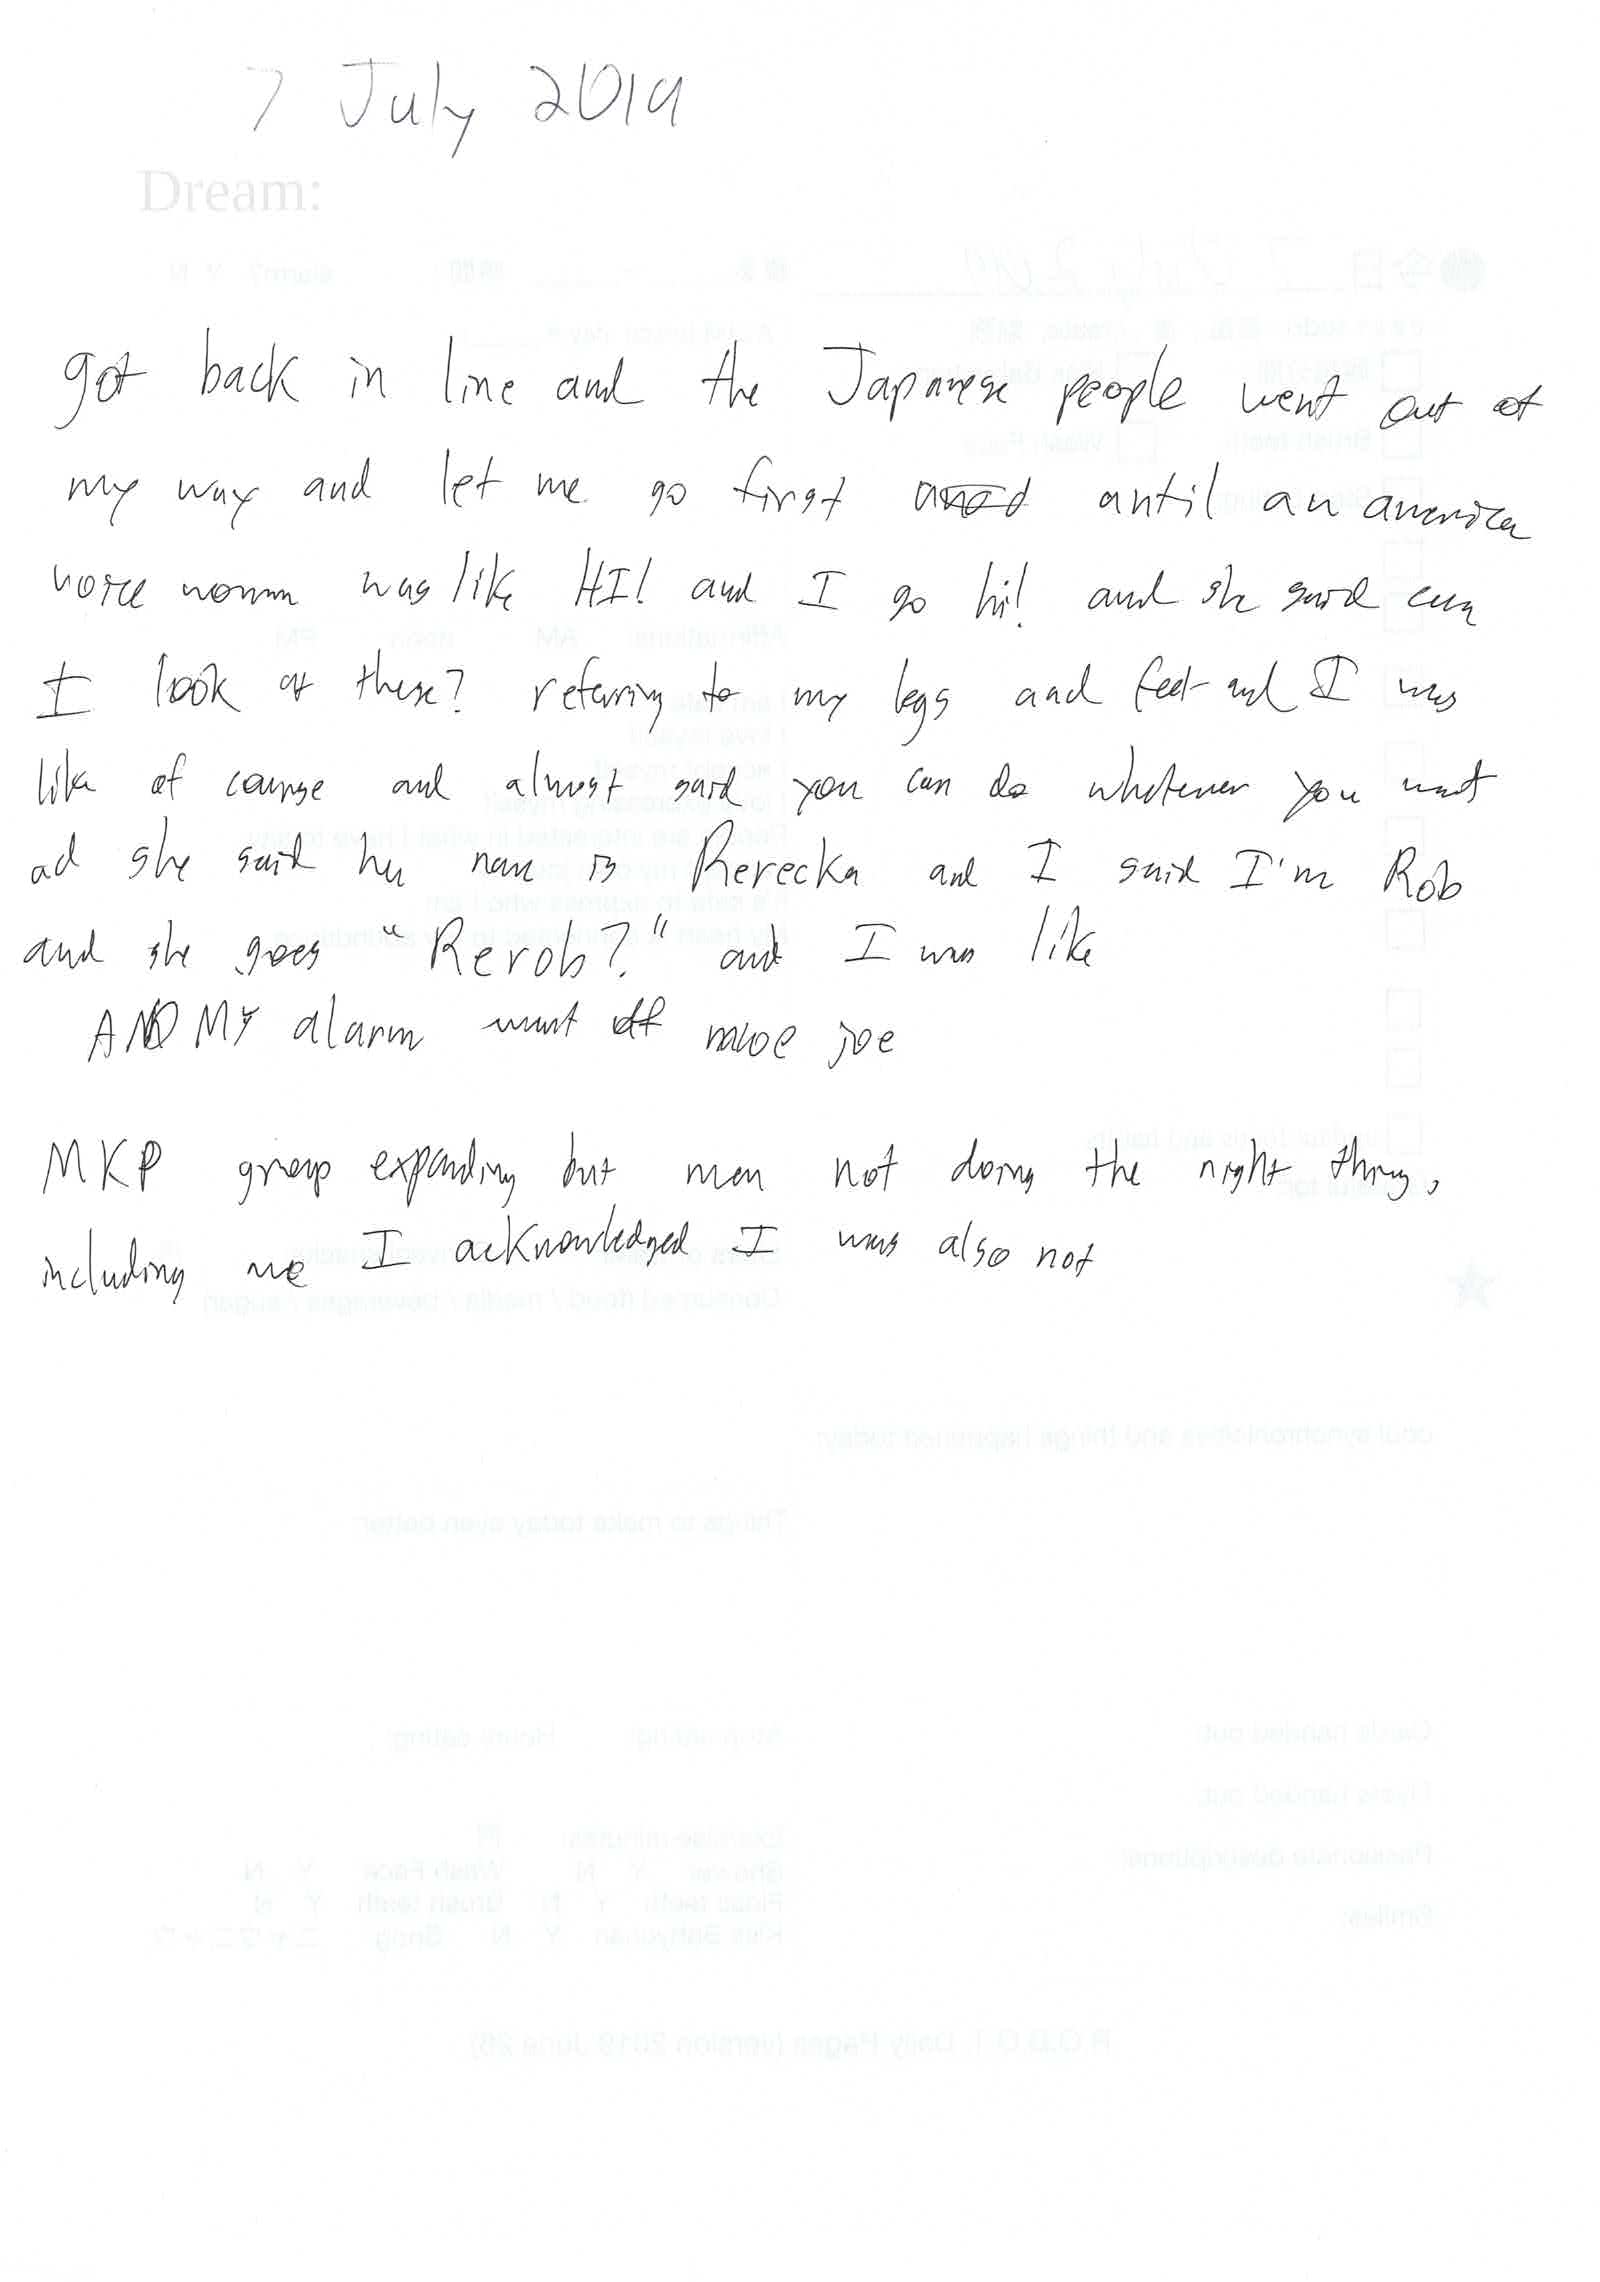 7 July 2019
Dream:
got back in line and the Japanese people went out of
my way and let me go first until an american
voice woman was like HI! and I go hi! and she said can
I look at these? referring to my legs and feet and I was
like of course and almost said you can do whatever you want
ad she said her name is Rerecka and I said I'm Rob
and she goes "Rerob?" and I was like
AND MY alarm went off joe
MKP group expanding but men not doing the right thing,
including me I acknowledged I was also not